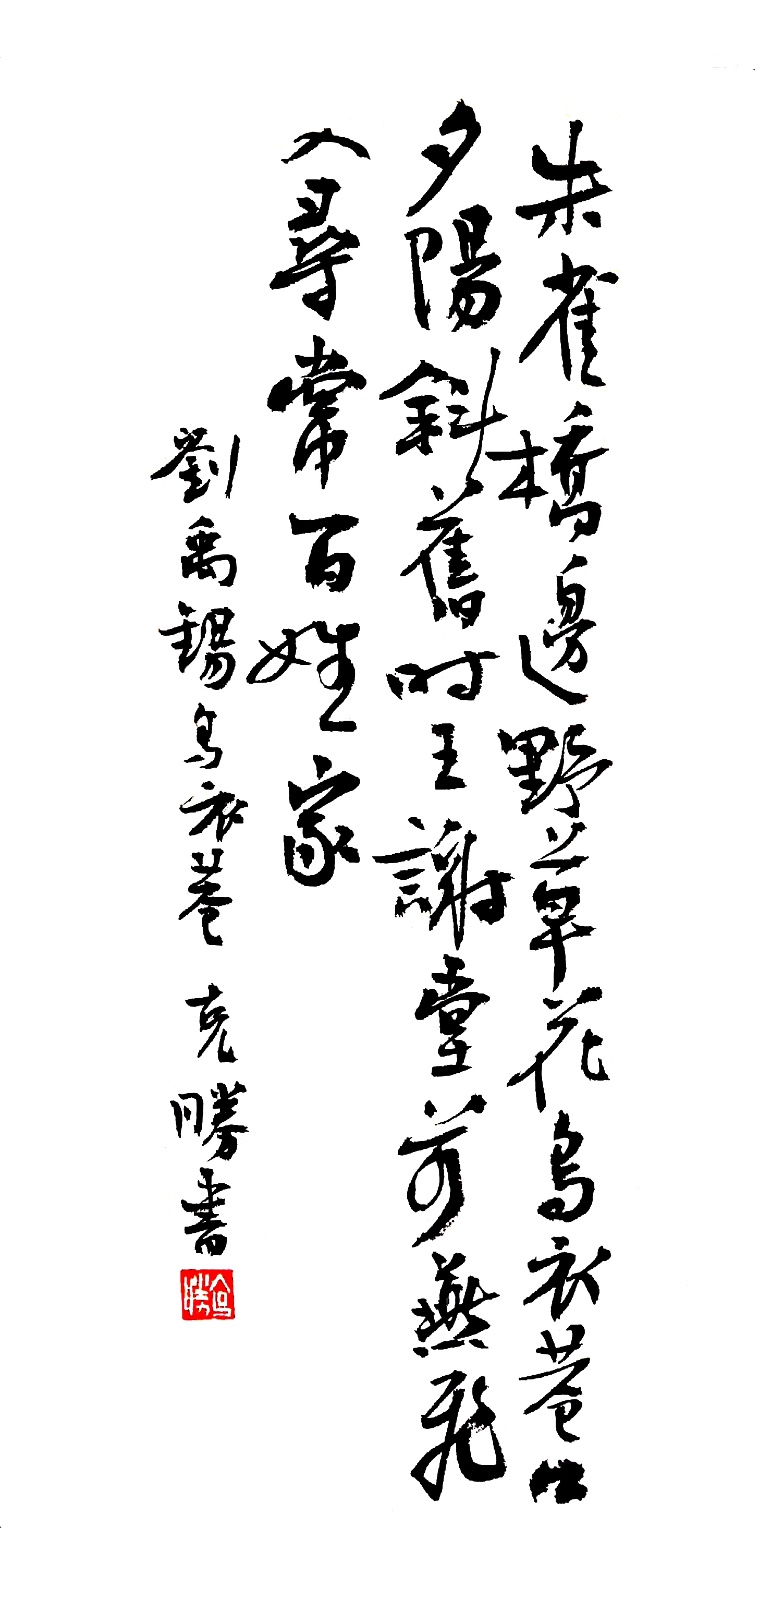 朱雀橋邊野草花烏衣巷口
夕陽斜舊時王謝堂前燕飛
入尋常百姓家
劉禹錫烏衣巷 克勝書
勝